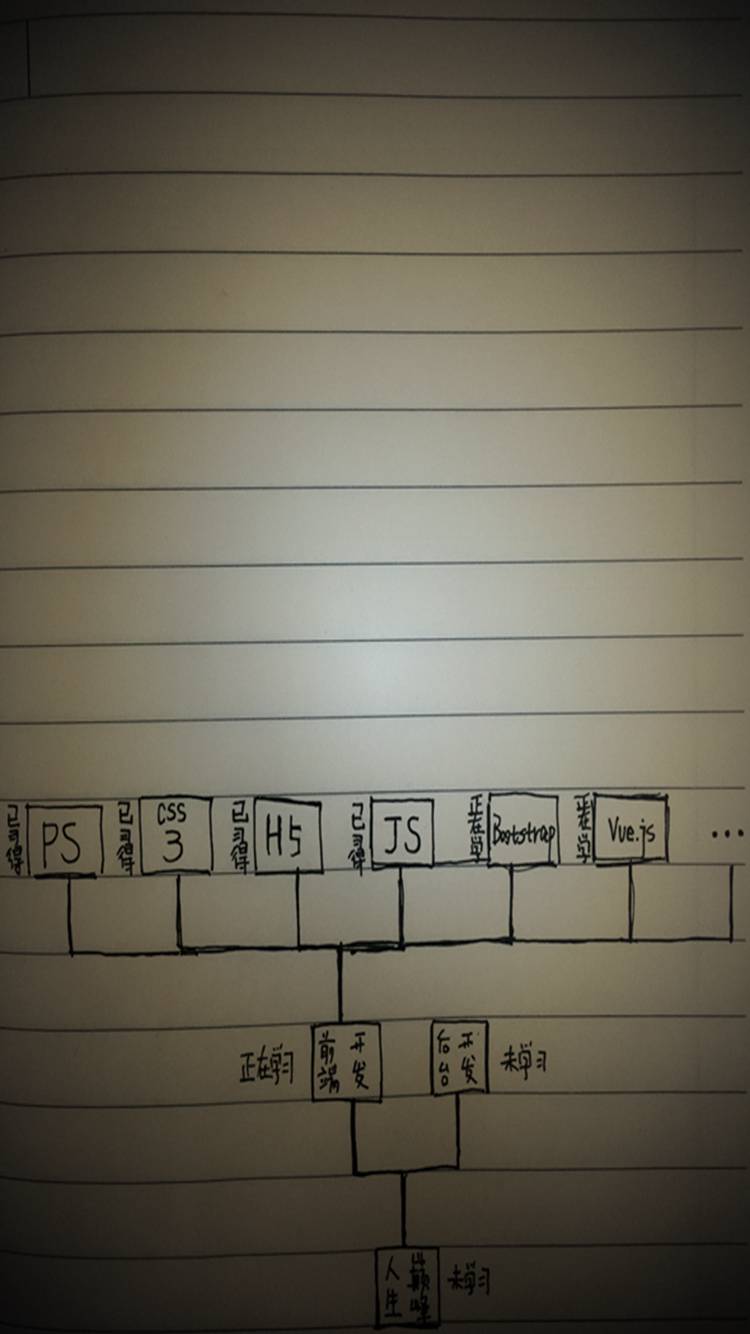 已习得 PS
已习得 CSS3
已习得 H5
已习得 JS
正在学 Bootstrap
正在学 Vue.js
...
正在学习 前端开发
后台开发 未学习
人生巅峰 未学习